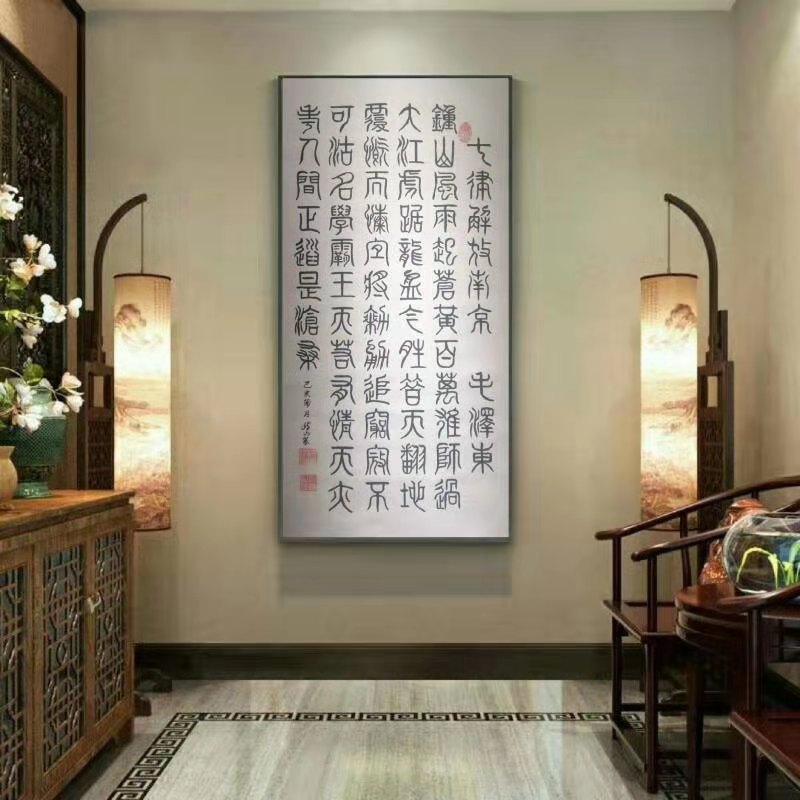 七律解放南京 毛澤東
鍾山風雨起蒼黃百萬雄師過
大江虎踞龍盤今勝昔天翻地
覆慨而慷宜將剩勇追窮寇不
可沽名學霸王天若有情天亦
老人間正道是滄桑
己亥 月